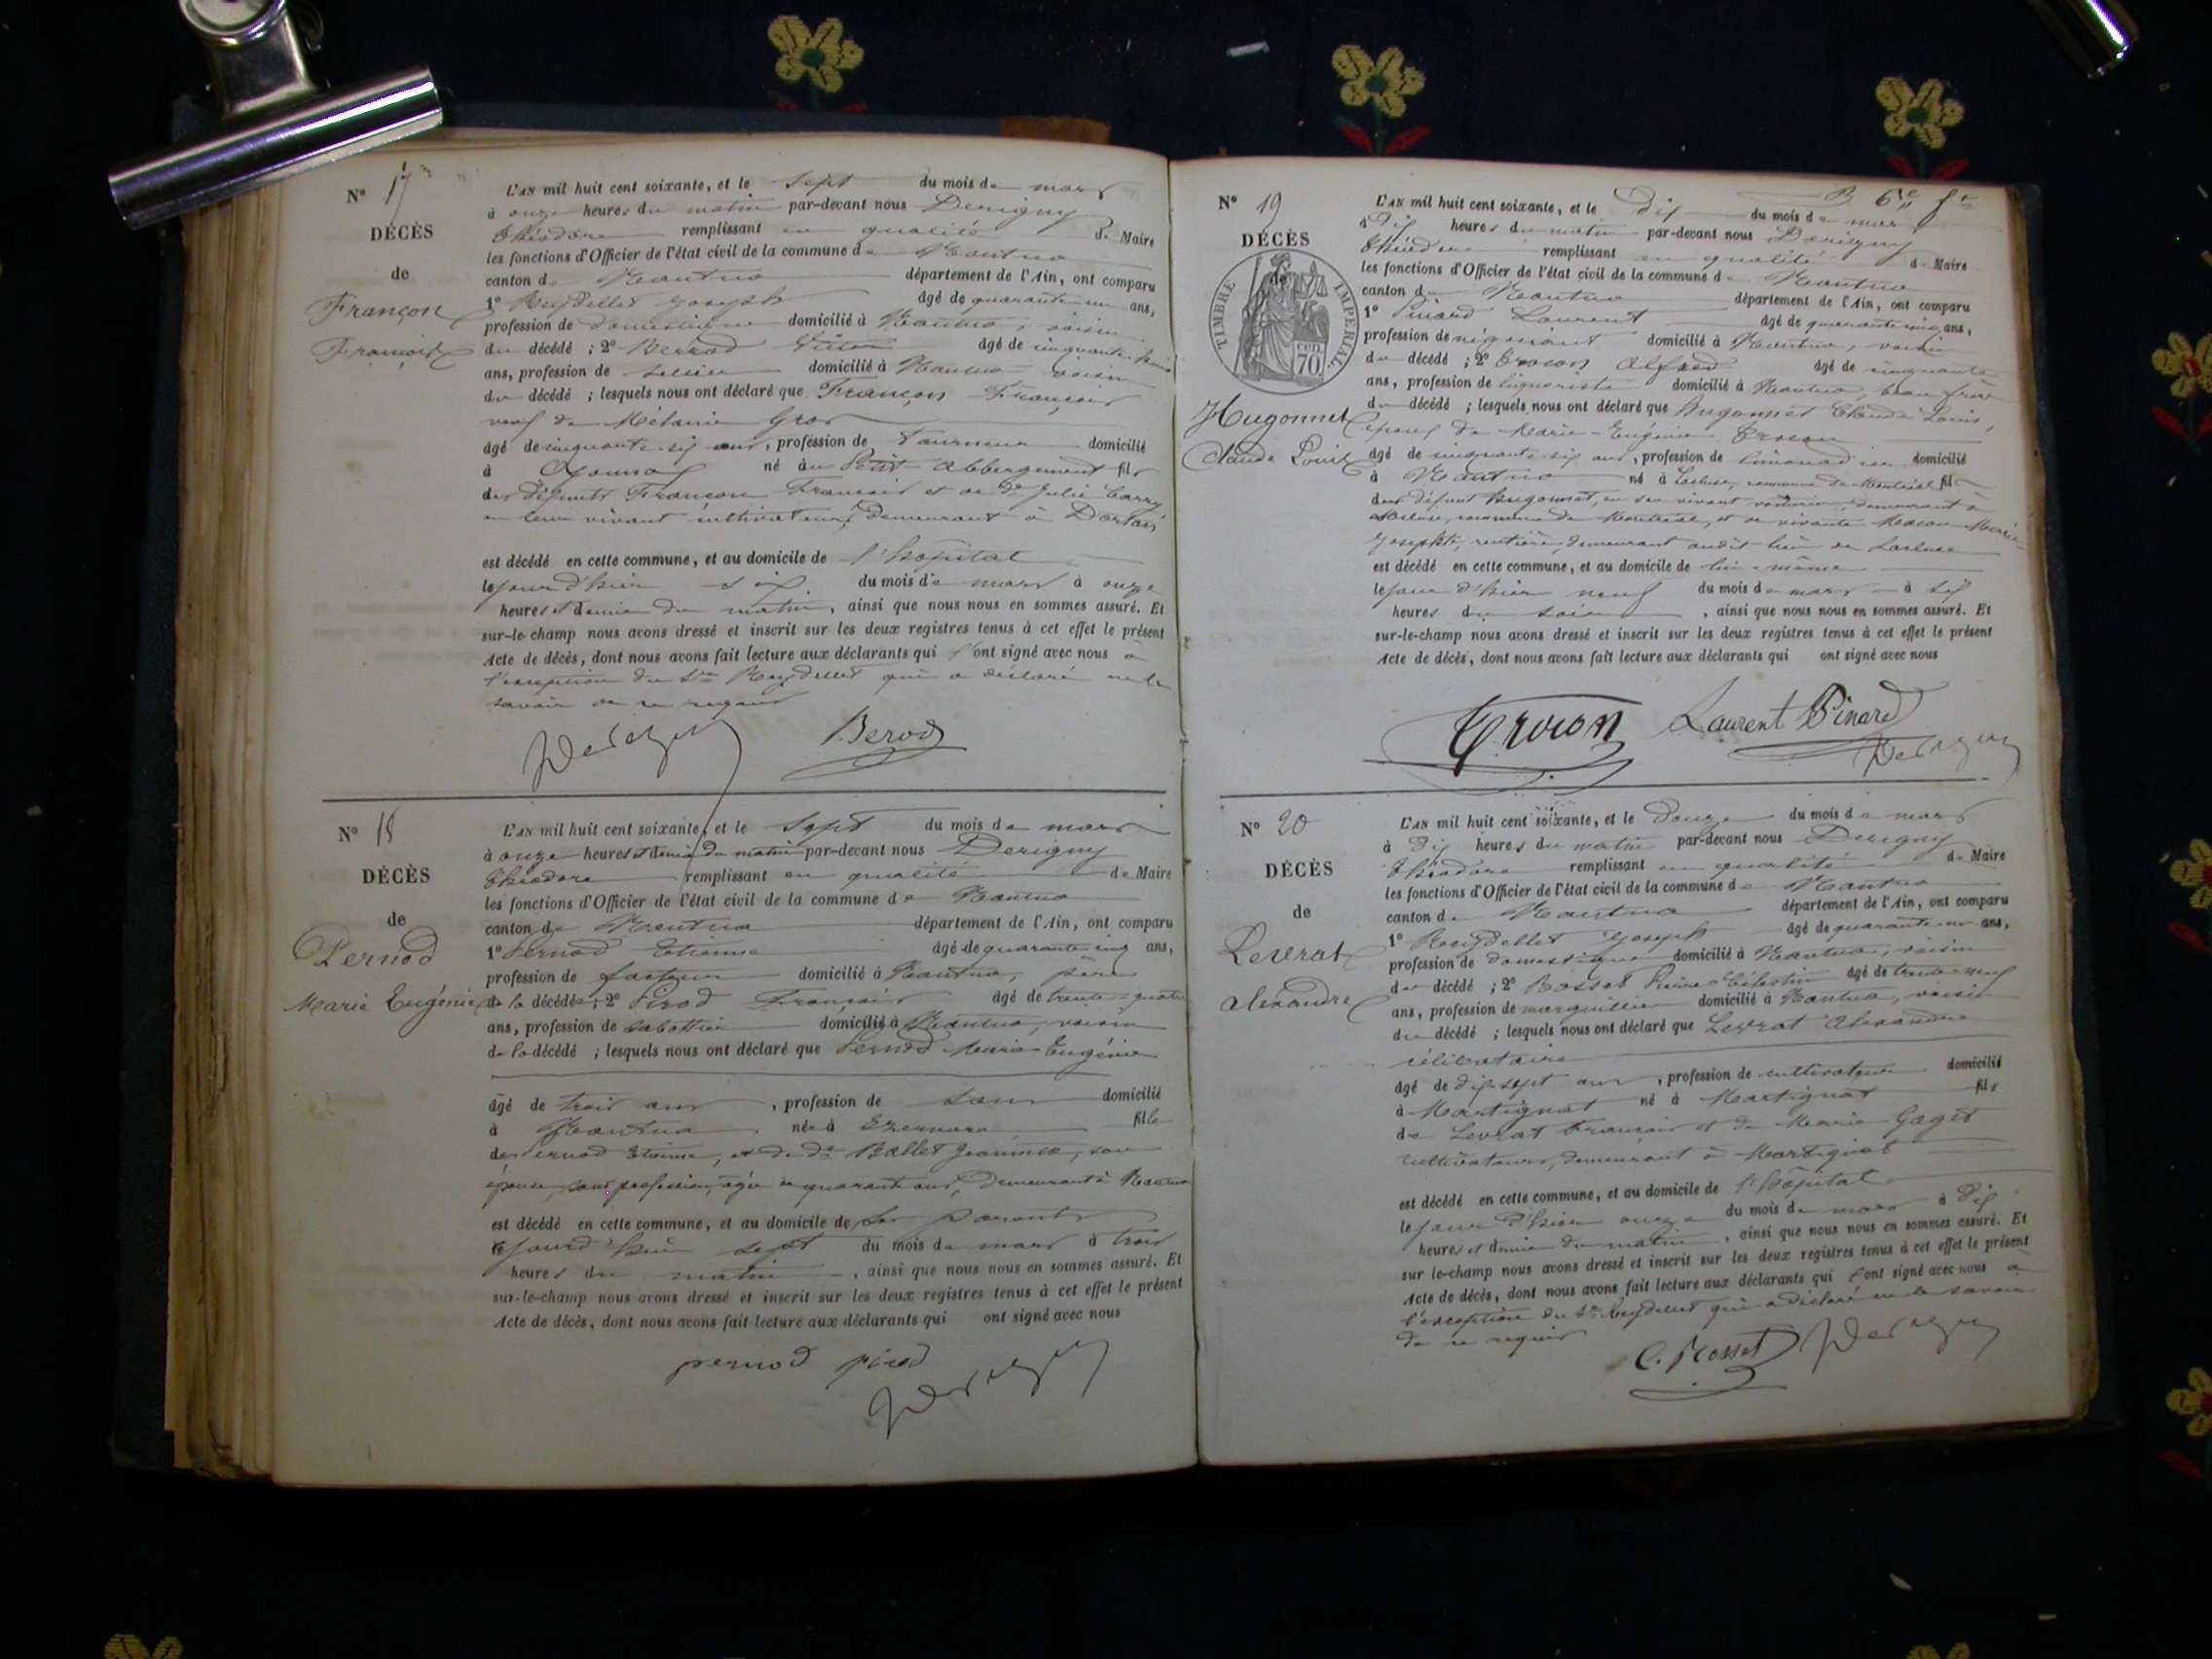 N° 17
DÉCÈS
de
Françon
François
L'AN mil huit cent soixante, et le Sept du mois de mars
à onze heures du matin par-devant nous Derigny
Théodore remplissant en qualité de Maire
les fonctions d'Officier de l'état civil de la commune de Nantua
canton de Nantua département de l'Ain, ont comparu
1° Reydellet Joseph âgé de quarante-un ans,
profession de domestique domicilié à Nantua, voisin
du décédé ; 2° Berrod âgé de cinquante
ans, profession de sellier domicilié à Nantua voisin
du décédé ; lesquels nous ont déclaré que Françon François
veuf de Mélanie Gros
âgé de cinquante-six ans, profession de Tourneur domicilié
à Oyonnax né au Petit Abbergement fils
des défunts Françon François et de De Julie Carry
en leur vivant cultivateurs, demeurant à Dortan
est décédé en cette commune, et au domicile de l'hôpital
le jour d'hier six du mois de mars à onze
heures et demie du matin, ainsi que nous nous en sommes assuré. Et
sur-le-champ nous avons dressé et inscrit sur les deux registres tenus à cet effet le présent
Acte de décès, dont nous avons fait lecture aux déclarants qui l'ont signé avec nous à
l'exception du Sr Reydellet qui a déclaré ne le
savoir de ce requis
Derigny Berod
N° 18
DÉCÈS
de
Pernod
Marie Eugénie
L'AN mil huit cent soixante, et le Sept du mois de mars
à onze heures et demie du matin par-devant nous Derigny
Théodore remplissant en qualité de Maire
les fonctions d'Officier de l'état civil de la commune de Nantua
canton de Nantua département de l'Ain, ont comparu
1° Pernod Etienne âgé de quarante cinq ans,
profession de facteur domicilié à Nantua, père
de la décédée ; 2° Pirod François âgé de trente-quatre
ans, profession de sabottier domicilié à Nantua, voisin
de la décédé ; lesquels nous ont déclaré que Pernod Marie Eugénie
âgé de trois ans, profession de sans domicilié
à Nantua née à Ezernore fille
de Pernod Etienne, et de De Ballet Jeannette, son
épouse, sans profession, âgée de quarante ans, demeurant à Nantua
est décédé en cette commune, et au domicile de ses parents
le jourd'hui sept du mois de mars à trois
heures du matin, ainsi que nous nous en sommes assuré. Et
sur-le-champ nous avons dressé et inscrit sur les deux registres tenus à cet effet le présent
Acte de décès, dont nous avons fait lecture aux déclarants qui ont signé avec nous
pernod pirod
Derigny
N° 19
DÉCÈS
de
TIMBRE IMPÉRIAL
cen
70
Hugonnet
Claude Louis
L'AN mil huit cent soixante, et le Dix du mois de mars
à Dix heures du matin par-devant nous Derigny
Théodore remplissant en qualité de Maire
les fonctions d'Officier de l'état civil de la commune de Nantua
canton de Nantua département de l'Ain, ont comparu
1° Pinard Laurent âgé de quarante cinq ans,
profession de négociant domicilié à Nantua, voisin
du décédé ; 2° Croson Alfred âgé de cinquante
ans, profession de liquoriste domicilié à Nantua, beau frère
du décédé ; lesquels nous ont déclaré que Hugonnet Claude Louis,
époux de Marie-Eugénie Croson
âgé de cinquante-six ans, profession de limonadier domicilié
à Nantua né à Lacluse, commune de Montréal fils
de défunt Hugonnet, en son vivant voiturier, demeurant à
Lacluse, commune de Montréal, et de vivante Macon Marie
Josephte, rentière, demeurant audit lieu de Lacluse
est décédé en cette commune, et au domicile de lui-même
le jour d'hier neuf du mois de mars à six
heures du soir, ainsi que nous nous en sommes assuré. Et
sur-le-champ nous avons dressé et inscrit sur les deux registres tenus à cet effet le présent
Acte de décès, dont nous avons fait lecture aux déclarants qui ont signé avec nous
Laurent Pinard
Derigny
N° 20
DÉCÈS
de
Levrat
alexandre
L'AN mil huit cent soixante, et le Douze du mois de mars
à Dix heures du matin par-devant nous Derigny
Théodore remplissant en qualité de Maire
les fonctions d'Officier de l'état civil de la commune de Nantua
canton de Nantua département de l'Ain, ont comparu
1° Reydellet Joseph âgé de quarante-un ans,
profession de domestique domicilié à Nantua, voisin
du décédé ; 2° Rosset Pierre Célestin âgé de trente-neuf
ans, profession de marguillier domicilié à Nantua, voisin
du décédé ; lesquels nous ont déclaré que Levrat Alexandre
célibataire
âgé de dix-sept ans, profession de cultivateur domicilié
à Martignat né à Martignat fils
de Levrat François et de Marie Gaget
cultivateurs, demeurant à Martignat
est décédé en cette commune, et au domicile de l'hôpital
le jour d'hier onze du mois de mars à dix
heures et demie du matin, ainsi que nous nous en sommes assuré. Et
sur le-champ nous avons dressé et inscrit sur les deux registres tenus à cet effet le présent
Acte de décès, dont nous avons fait lecture aux déclarants qui l'ont signé avec nous à
l'exception du Sr Reydellet qui a déclaré ne le savoir
de ce requis
C. Rosset Derigny